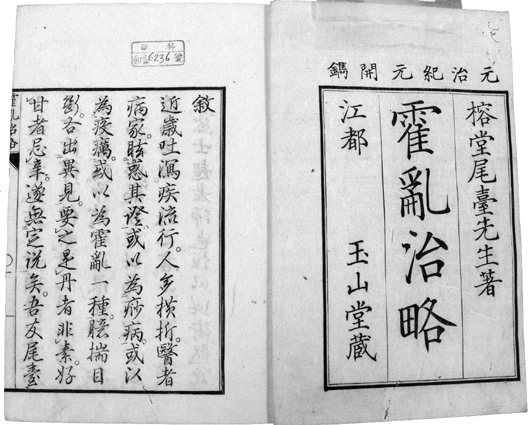 元治紀元開鐫
榕堂尾臺先生著
霍亂治略
江都 玉山堂蔵
6236
敘
近歲吐瀉疾流行。人多橫折。醫者
病家眩惑其證。或以為痧病。或以
為疫癘。或以為霍亂一種。臆揣目
衡。各出異見。要之是丹者非素。好
甘者忌辛。遂無定説矣。吾友尾臺
霍亂治略